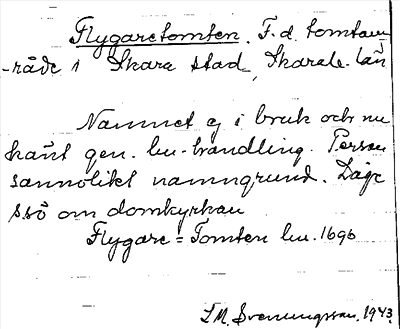 Flygaretomten. F.d. tomtom-
råde i Skara stad, Skarab. län
Namnet ej i bruk och nu
känt gen. bu-handling. Person
sannolikt namngrund. Läge
ssö om domkyrkan
Flygare=Tomten bu. 1696
I.M. Svenungsson. 1943.